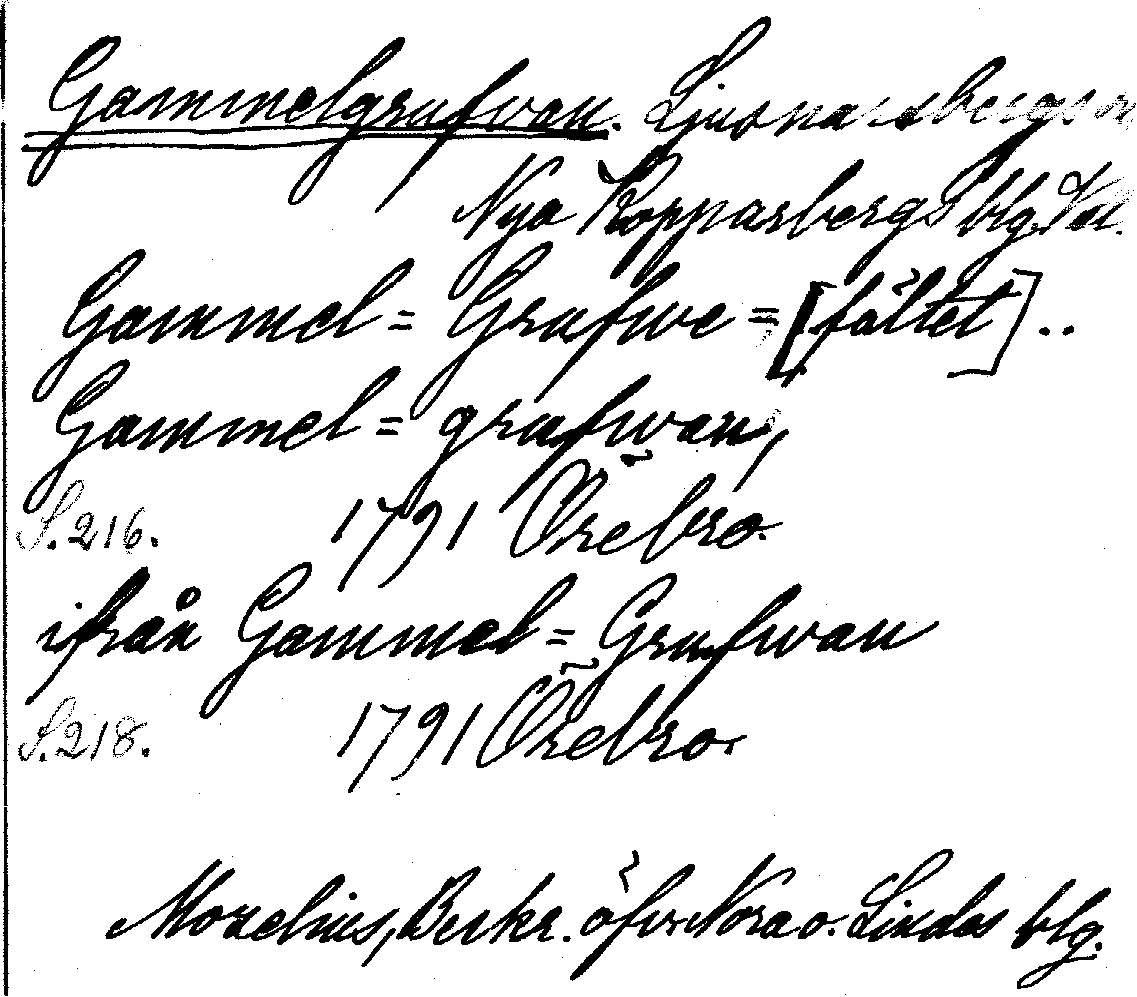 Gammelgrufwan. Ljusnarsbergs sn
Nya Kopparbergs blg. Vstl.
Gammel=Grufwe=[fältet]..
Gammel=grufwan,
S.216. 1791 Örebro.
ifrån Gammel=Grufwan
S.218. 1791 Örebro.
Morelius, Beskr. öfv. Nora o. Lindes blg.